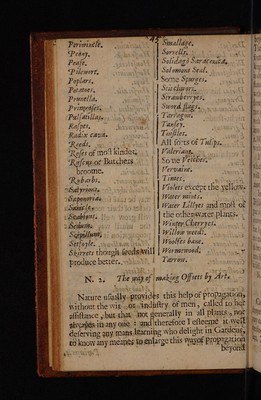 Periwincle.
Peony.
Pease.
Pilewort.
Poplars.
Potatoes.
Prunella.
Primroses.
Pulsatillas.
Raspes.
Radix cava.
Reeds.
Roses of most kindes.
Ruscus or Butchers
broome.
Rhubarbs.
Satyrions.
Saponaria.
Scabious.
Sedum.
Serpillum.
Setfoyle.
Skirrets though seeds will
produce better.
Smallage.
Sorrells.
Solidago Saracenica.
Solomons Seal.
Some Spurges.
Stitchwort.
Strawberryes.
Sword flags.
Tarragon.
Tansey.
Teasles.
All sorts of Tulips.
Valerians.
Some Veitches.
Vervaine.
Times.
Violets except the yellow.
Water mints.
Water Lillyes and most of
the other water plants.
Winter Cherryes.
Willow weeds.
Woolfes bane.
Wormewood.
Yarrow.
N. 2. The way of making Offsets by Art.
Nature usually provides this help of propagation,
without the wit or industry of men, called to her
assistance, but that not generally in all plants, nor
alwayes in any one: and therefore I esteeme it well
deserving any mans learning who delight in Gardens,
to know any meanes to enlarge this way of propagation
beyond